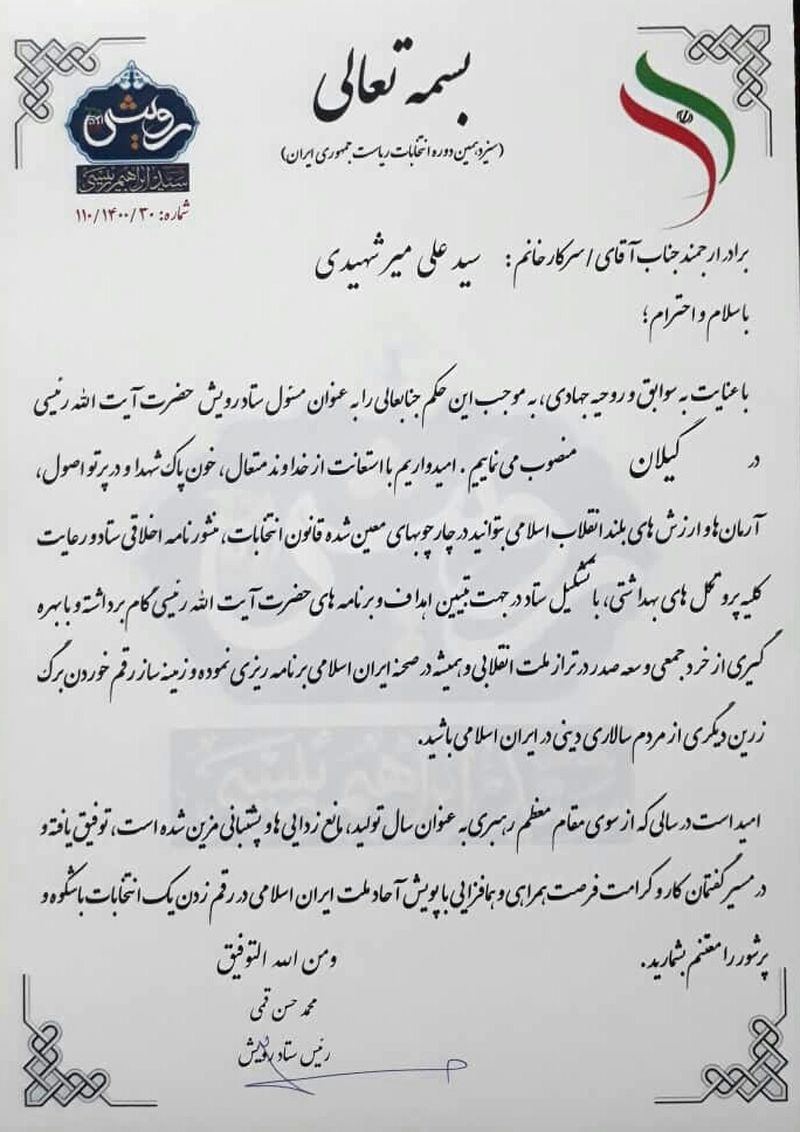 بسمه تعالی
(سیزدهمین دوره انتخابات ریاست جمهوری ایران)
رویش
سید ابراهیم رئیسی
شماره: ۱۱۰/۱۴۰۰/۳۰
برادر ارجمند جناب آقای / سرکار خانم: سید علی میر شهیدی
با سلام و احترام؛
با عنایت به سوابق و روحیه جهادی، به موجب این حکم جنابعالی را به عنوان مسئول ستاد رویش حضرت آیت الله رئیسی
در گیلان منصوب می نماییم. امیدواریم با استعانت از خداوند متعال، خون پاک شهدا و در پرتو اصول،
آرمان ها و ارزش های بلند انقلاب اسلامی بتوانید در چارچوبهای معین شده قانون انتخابات، منشور نامه اخلاقی ستاد و رعایت
کلیه پروتکل های بهداشتی، با تشکیل ستاد در جهت تبیین اهداف و برنامه های حضرت آیت الله رئیسی گام برداشته و با بهره
گیری از خرد جمعی و سعه صدر در تراز ملت انقلابی و همیشه در صحنه ایران اسلامی برنامه ریزی نموده و زمینه ساز رقم خوردن برگ
زرین دیگری از مردم سالاری دینی در ایران اسلامی باشید.
امید است در سالی که از سوی مقام معظم رهبری به عنوان سال تولید، مانع زدایی ها و پشتبانی مزین شده است، توفیق یافته و
در مسیر گفتمان کار و کرامت فرصت همراهی و همافزایی با پویش آحاد ملت ایران اسلامی در رقم زدن یک انتخابات باشکوه و
پرشور را مغتنم بشمارید.
ومن الله التوفیق
محمد حسن قمی
رئیس ستاد رویش